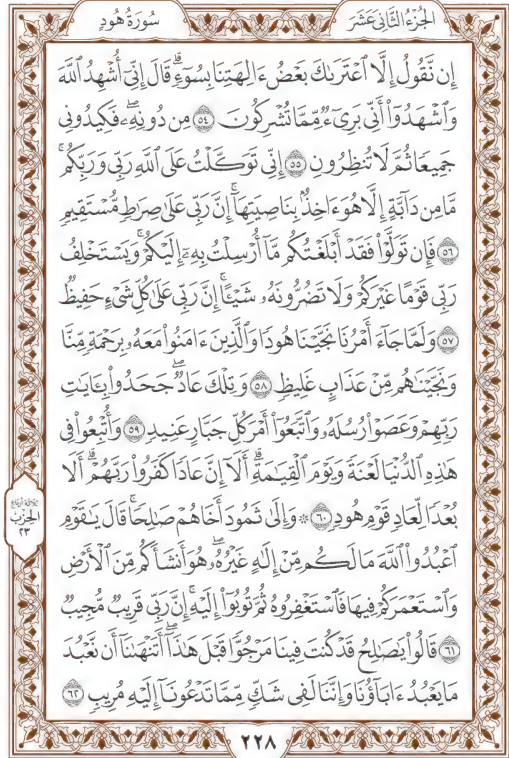 الجُزْءُ الثَّانِي عَشَرَ
سُورَةُ هُودٍ
إِن نَّقُولُ إِلَّا ٱعْتَرَىٰكَ بَعْضُ ءَالِهَتِنَا بِسُوٓءٍۗ قَالَ إِنِّيٓ أُشْهِدُ ٱللَّهَ
وَٱشْهَدُوٓاْ أَنِّي بَرِيٓءٌ مِّمَّا تُشْرِكُونَ ٥٤ مِن دُونِهِۦۖ فَكِيدُونِي
جَمِيعًا ثُمَّ لَا تُنظِرُونِ ٥٥ إِنِّي تَوَكَّلْتُ عَلَى ٱللَّهِ رَبِّي وَرَبِّكُمۚ
مَّا مِن دَآبَّةٍ إِلَّا هُوَ ءَاخِذُۢ بِنَاصِيَتِهَآۚ إِنَّ رَبِّي عَلَىٰ صِرَٰطٍ مُّسْتَقِيمٍ
٥٦ فَإِن تَوَلَّوْاْ فَقَدْ أَبْلَغْتُكُم مَّآ أُرْسِلْتُ بِهِۦٓ إِلَيْكُمْۚ وَيَسْتَخْلِفُ
رَبِّي قَوْمًا غَيْرَكُمْ وَلَا تَضُرُّونَهُۥ شَيْـًٔاۚ إِنَّ رَبِّي عَلَىٰ كُلِّ شَيْءٍ حَفِيظٌ
٥٧ وَلَمَّا جَآءَ أَمْرُنَا نَجَّيْنَا هُودًا وَٱلَّذِينَ ءَامَنُواْ مَعَهُۥ بِرَحْمَةٍ مِّنَّا
وَنَجَّيْنَٰهُم مِّنْ عَذَابٍ غَلِيظٍ ٥٨ وَتِلْكَ عَادٌۖ جَحَدُواْ بِـَٔايَٰتِ
رَبِّهِمْ وَعَصَوْاْ رُسُلَهُۥ وَٱتَّبَعُوٓاْ أَمْرَ كُلِّ جَبَّارٍ عَنِيدٍ ٥٩ وَأُتْبِعُواْ فِي
هَٰذِهِ ٱلدُّنْيَا لَعْنَةً وَيَوْمَ ٱلْقِيَٰمَةِۗ أَلَآ إِنَّ عَادًا كَفَرُواْ رَبَّهُمْۗ أَلَا
بُعْدًا لِّعَادٍ قَوْمِ هُودٍ ٦٠ ۞ وَإِلَىٰ ثَمُودَ أَخَاهُمْ صَٰلِحًاۚ قَالَ يَٰقَوْمِ
ٱعْبُدُواْ ٱللَّهَ مَا لَكُم مِّنْ إِلَٰهٍ غَيْرُهُۥۖ هُوَ أَنشَأَكُم مِّنَ ٱلْأَرْضِ
وَٱسْتَعْمَرَكُمْ فِيهَا فَٱسْتَغْفِرُوهُ ثُمَّ تُوبُوٓاْ إِلَيْهِۚ إِنَّ رَبِّي قَرِيبٌ مُّجِيبٌ
٦١ قَالُواْ يَٰصَٰلِحُ قَدْ كُنتَ فِينَا مَرْجُوًّا قَبْلَ هَٰذَآۖ أَتَنْهَىٰنَآ أَن نَّعْبُدَ
مَا يَعْبُدُ ءَابَآؤُنَا وَإِنَّنَا لَفِي شَكٍّ مِّمَّا تَدْعُونَآ إِلَيْهِ مُرِيبٍ ٦٢
ثلاثة أرباع
الحِزْب
٢٣
٢٢٨